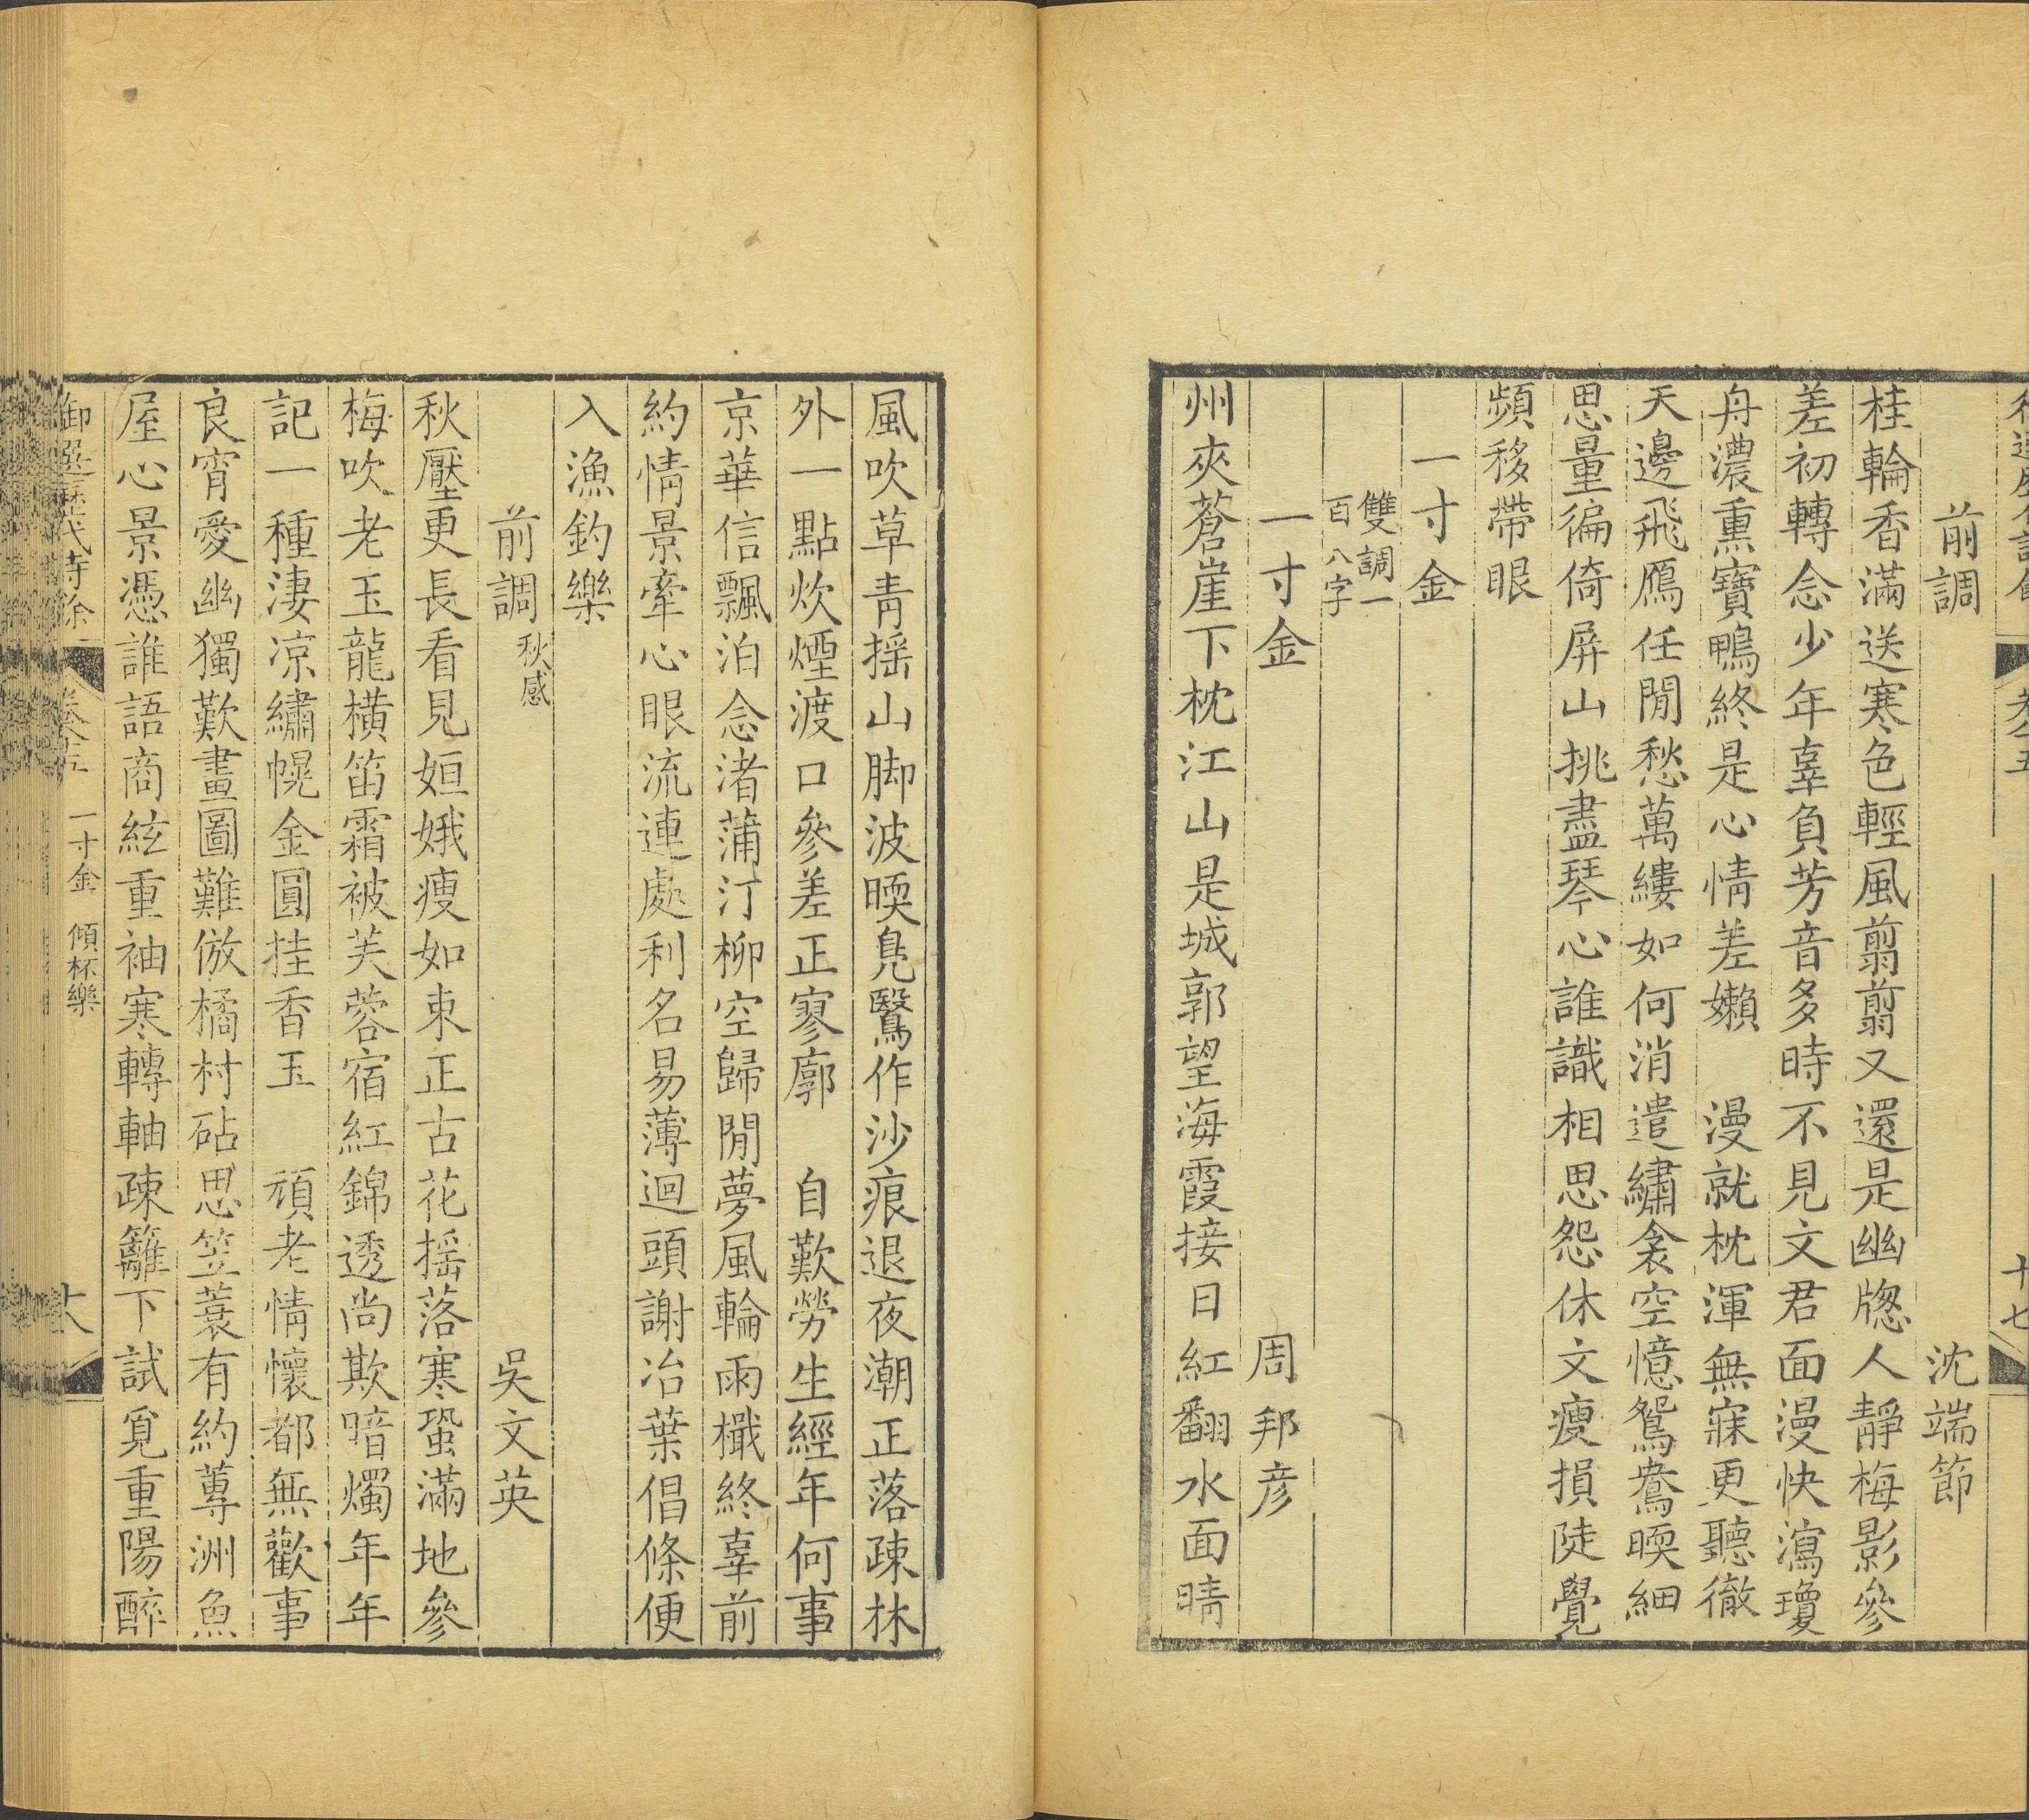 前調 沈端節
桂輪香滿送寒色輕風翦翦又還是幽牕人靜梅影參
差初轉念少年辜負芳音多時不見文君面漫快瀉瓊
舟濃熏寶鴨終是心情差嬾 漫就枕渾無寐更聽徹
天邊飛鴈任閒愁萬縷如何消遣繡衾空憶鴛鴦暝細
思量徧倚屏山挑盡琴心誰識相思怨休文瘦損陡覺
頻移帶眼
一寸金
雙調一
百八字
一寸金 周邦彥
州夾蒼崖下枕江山是城郭望海霞接日紅翻水面晴
風吹草青搖山脚波暝鳧鷖作沙痕退夜潮正落疎林
外一點炊煙渡口參差正寥廓 自歎勞生經年何事
京華信飄泊念渚蒲汀柳空歸閒夢風輪雨檝終辜前
約情景牽心眼流連處利名易薄迴頭謝冶葉倡條便
入漁釣樂
前調秋感 吳文英
秋壓更長看見姮娥瘦如束正古花搖落寒蛩滿地參
梅吹老玉龍橫笛霜被芙蓉宿紅錦透尚欺暗燭年年
記一種淒凉繡幌金圓挂香玉 頑老情懷都無歡事
良宵愛幽獨歎畫圖難倣橘村砧思笠蓑有約蓴洲魚
屋心景憑誰語商絃重袖寒轉軸疎籬下試覓重陽醉
一寸金 傾杯樂